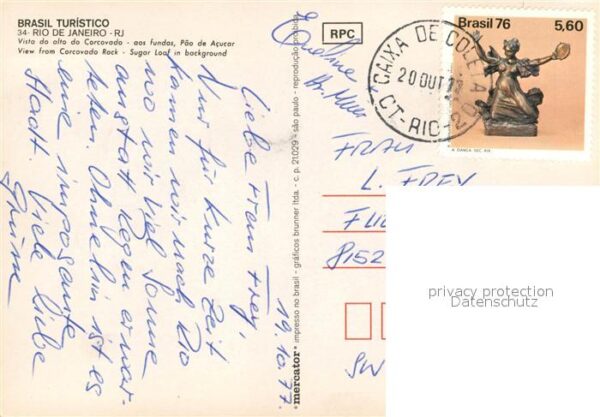 BRASIL TURÍSTICO
34- RIO DE JANEIRO - RJ
Vista do alto do Corcovado - aos fundos, Pão de Açucar
View from Corcovado Rock - Sugar Loaf in background
RPC
Brasil 76 5,60
A. DANÇA, SÉC. XIX
CAIXA DE COLETA
20 OUT 77
CT-RIO-2
19.10.77.
Liebe Frau Frey,
Nur für kurze Zeit
kamen wir nach Rio
wo wir viel Sonne
anstatt Regen erwar-
teten. Ohnehin ist es
eine imposante
Stadt Viele liebe
Grüsse
FRAU
L. FREY
8152
mercator® impresso no brasil - gráficos brunner ltda. - c. p. 21029 - são paulo - reprodução proibida
privacy protection
Datenschutz